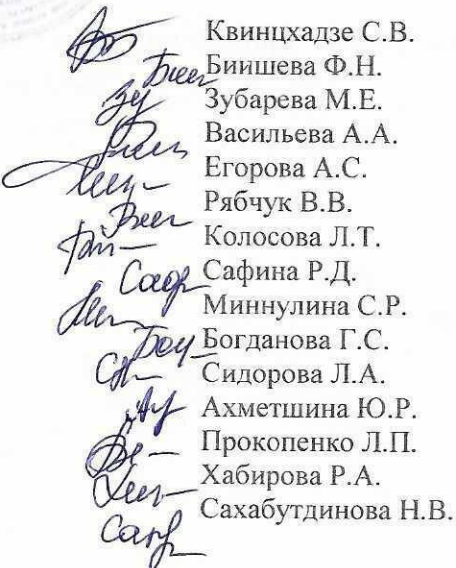 Квинцхадзе С.В.
Биишева Ф.Н.
Зубарева М.Е.
Васильева А.А.
Егорова А.С.
Рябчук В.В.
Колосова Л.Т.
Сафина Р.Д.
Миннулина С.Р.
Богданова Г.С.
Сидорова Л.А.
Ахметшина Ю.Р.
Прокопенко Л.П.
Хабирова Р.А.
Сахабутдинова Н.В.